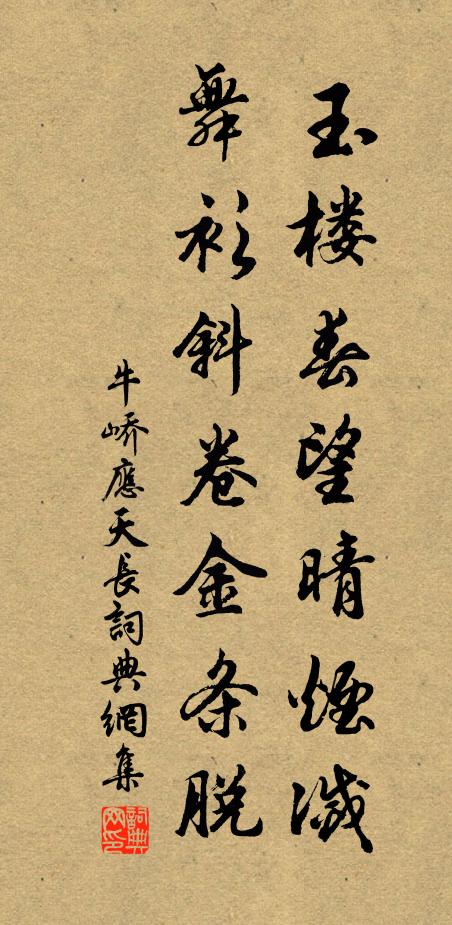 玉楼春望晴煙滅
舞衫斜卷金条脱
牛嶠應天長詞典網集
詞典網印